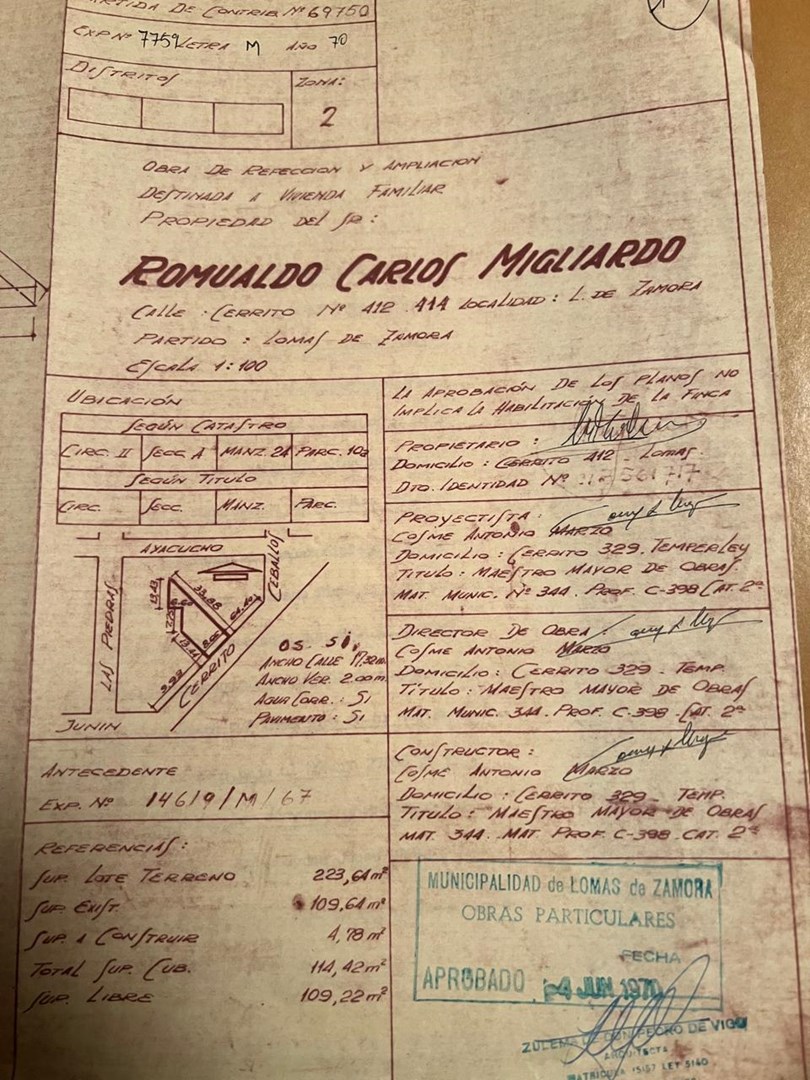 PARTIDA DE CONTRIB. Nº 69750
EXP Nº 7759 LETRA M AÑO 70
DISTRITOS
ZONA:
2
OBRA DE REFECCION Y AMPLIACION
DESTINADA A VIVIENDA FAMILIAR
PROPIEDAD DEL SR:
ROMUALDO CARLOS MIGLIARDO
CALLE : CERRITO Nº 412 414 LOCALIDAD : L. DE ZAMORA
PARTIDO : LOMAS DE ZAMORA
ESCALA 1:100
UBICACIÓN
SEGÚN CATASTRO
CIRC. II SECC. A MANZ. 24 PARC. 10a
SEGUN TITULO
CIRC. SECC. MANZ. PARC.
AYACUCHO
CEBALLOS
LAS PIEDRAS
CERRITO
JUNIN
13.43
33.88
64.40
8.00
13.44
9.99
OS. SI,
ANCHO CALLE 17.32 m.
ANCHO VER. 2.00 m
AGUA CORR. : SI
PAVIMENTO : SI
ANTECEDENTE
EXP. Nº 14619/M/67
REFERENCIAS :
SUP. LOTE TERRENO 223,64 m²
SUP. EXIST. 109,64 m²
SUP. A CONSTRUIR 4,78 m²
TOTAL SUP. CUB. 114,42 m²
SUP. LIBRE 109,22 m²
LA APROBACIÓN DE LOS PLANOS NO
IMPLICA LA HABILITACIÓN DE LA FINCA
PROPIETARIO :
DOMICILIO : CERRITO 412 LOMAS.
DTO. IDENTIDAD Nº
PROYECTISTA :
COSME ANTONIO MARZO
DOMICILIO : CERRITO 329. TEMPERLEY
TITULO : MAESTRO MAYOR DE OBRAS.
MAT. MUNIC. Nº 344. PROF. C-398 CAT. 2ª
DIRECTOR DE OBRA :
COSME ANTONIO MARZO
DOMICILIO : CERRITO 329 - TEMP.
TITULO : MAESTRO MAYOR DE OBRAS
MAT. MUNIC. 344. PROF C-398 - CAT. 2ª
CONSTRUCTOR :
COSME ANTONIO MARZO
DOMICILIO : CERRITO 329 - TEMP.
TITULO : MAESTRO MAYOR DE OBRAS
MAT. 344. MAT PROF. C-398. CAT. 2ª
MUNICIPALIDAD de LOMAS de ZAMORA
OBRAS PARTICULARES
FECHA
APROBADO -4 JUN 1970
ZULEMA DE DE VIGO
ARQUITECTA
MATRICULA 5157 LET 5140